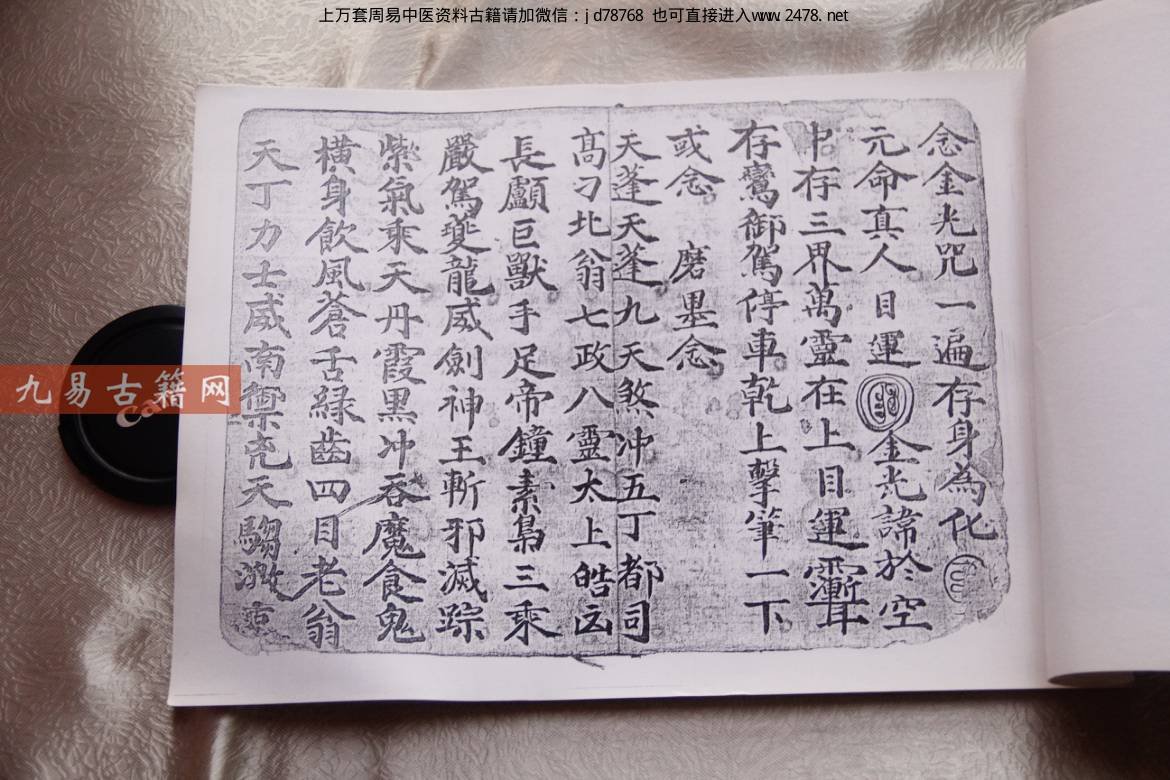 上万套周易中医资料古籍请加微信：jd78768 也可直接进入www.2478.net
念金光咒一遍存身為化
元命真人目運金光諱於空
中存三界萬靈在上目運
存鸞御駕停車乾上擊筆一下
或念 磨墨念
天蓬天蓬九天煞冲五丁都司
高刁北翁七政八靈太上皓
長顱巨獸手足帝鐘素梟三乘
嚴駕夔龍威劍神王斬邪滅踪
紫氣乘天丹霞黑冲吞魔食鬼
橫身飲風蒼舌緑齒四目老翁
天丁力士威南禦兇天騶激
九易古籍网
Can